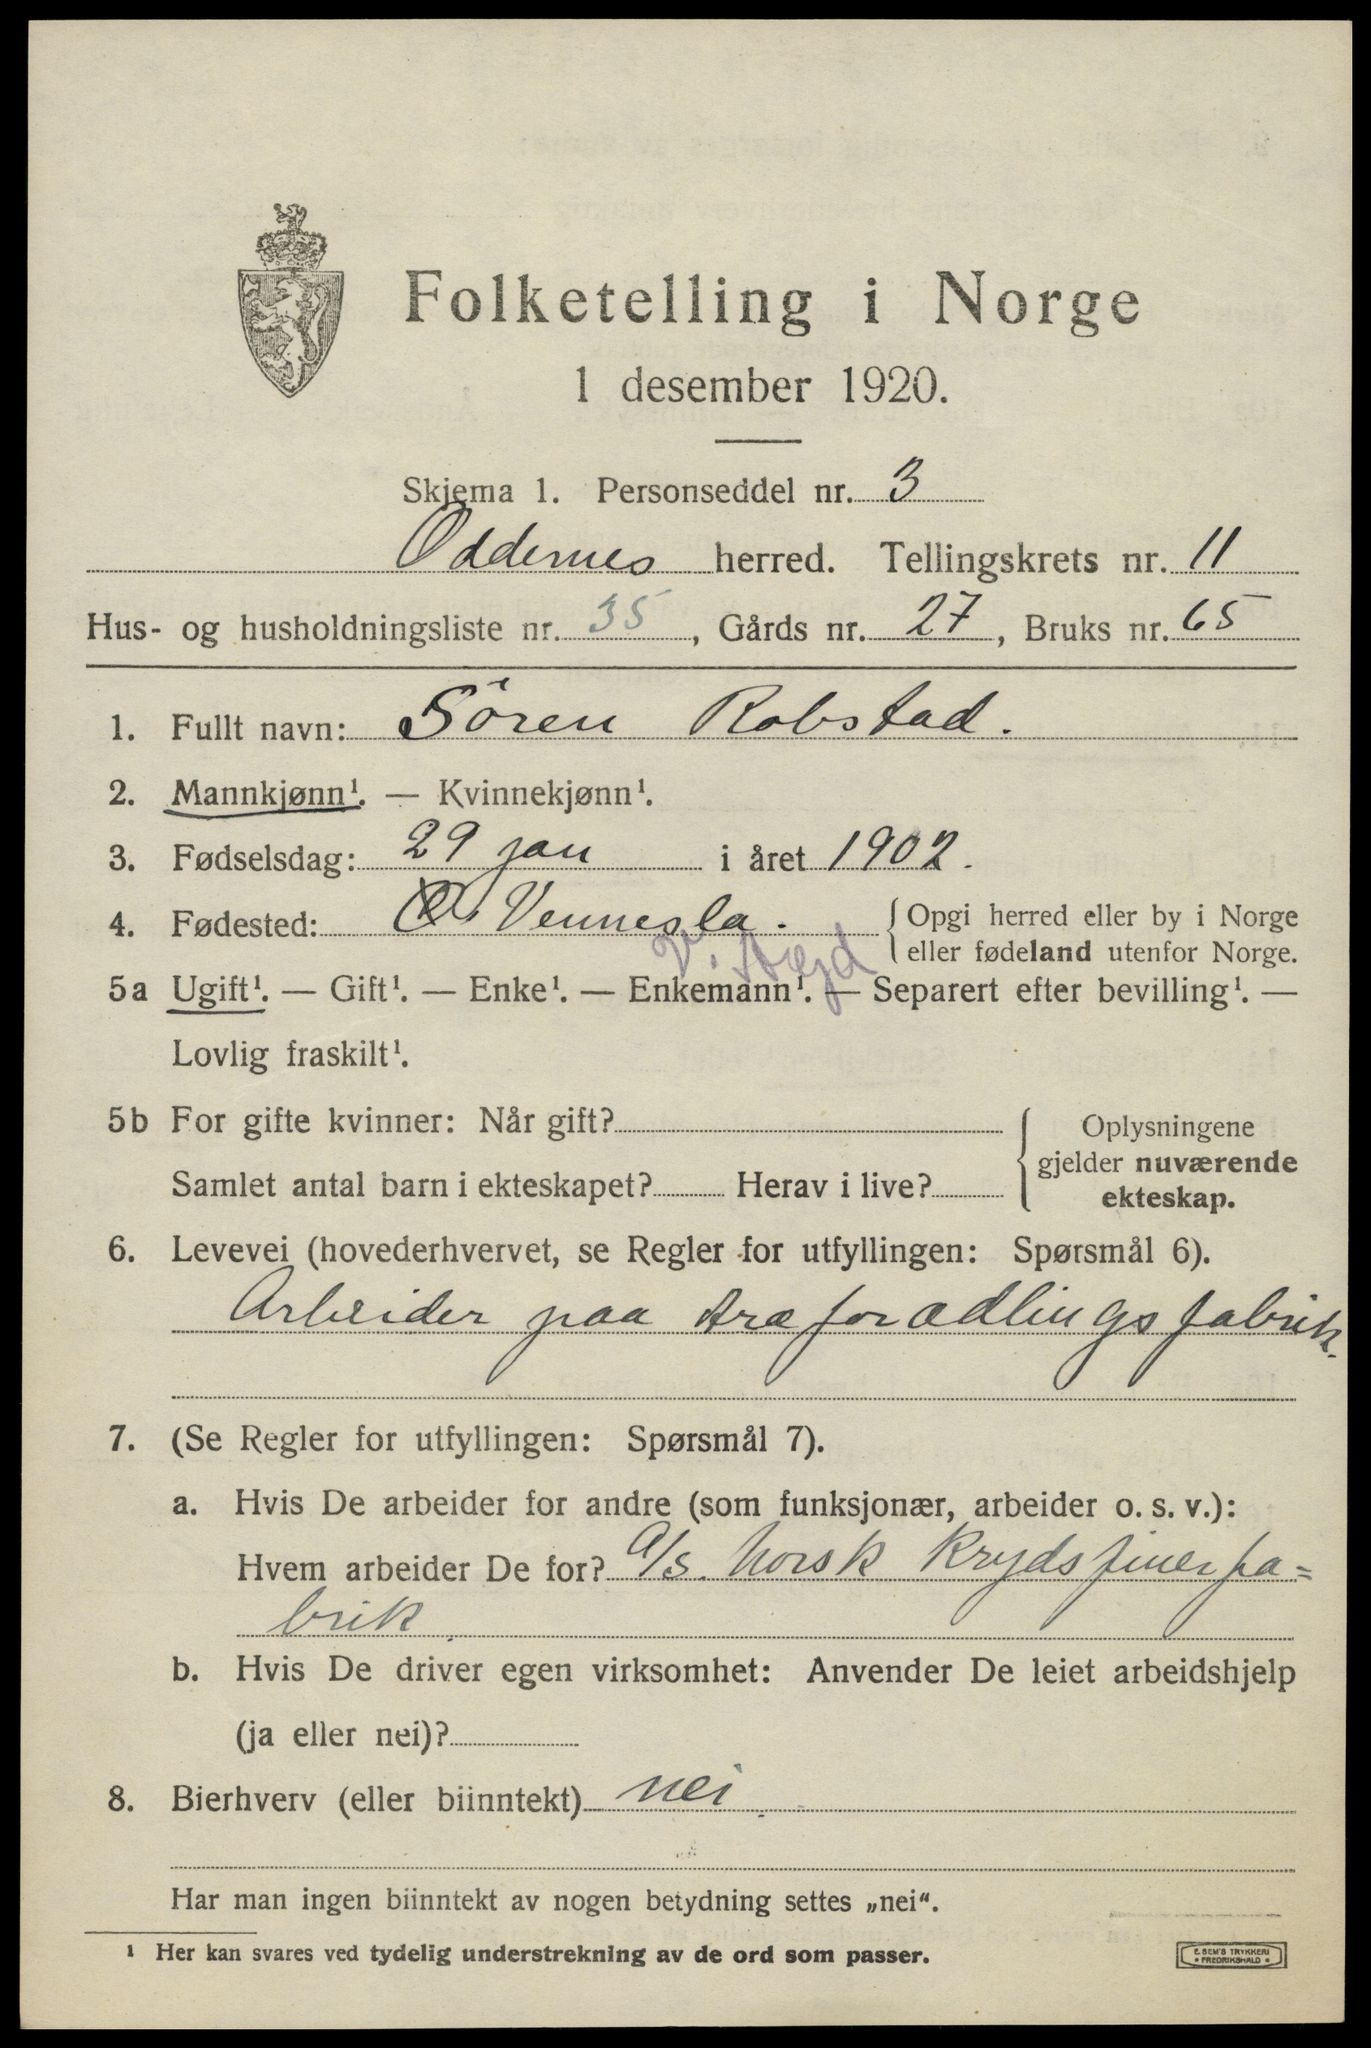 Folketelling i Norge
1 desember 1920.
Skjema 1. Personseddel nr. 3
Oddernes herred. Tellingskrets nr. 11
Hus- og husholdningsliste nr. 35, Gårds nr. 27, Bruks nr. 65
1. Fullt navn: Sören Robstad.
2. Mannkjønn¹. — Kvinnekjønn¹.
3. Fødselsdag: 29 jan i året 1902.
4. Fødested: Vennesla. Opgi herred eller by i Norge
eller fødeland utenfor Norge.
V. Agd
5a Ugift¹. — Gift¹. — Enke¹. — Enkemann¹. — Separert efter bevilling¹. —
Lovlig fraskilt¹.
5b For gifte kvinner: Når gift? Oplysningene
gjelder nuværende
Samlet antal barn i ekteskapet? Herav i live? ekteskap.
6. Levevei (hovederhvervet, se Regler for utfyllingen: Spørsmål 6).
Arbeider paa træforædlingsfabrik.
7. (Se Regler for utfyllingen: Spørsmål 7).
a. Hvis De arbeider for andre (som funksjonær, arbeider o. s. v.):
Hvem arbeider De for? A/S. Norsk Krydsfinerfa=
brik
b. Hvis De driver egen virksomhet: Anvender De leiet arbeidshjelp
(ja eller nei)?
8. Bierhverv (eller biinntekt) nei
Har man ingen biinntekt av nogen betydning settes „nei“.
¹ Her kan svares ved tydelig understrekning av de ord som passer.
E. SEM'S TRYKKERI
* FREDRIKSHALD *